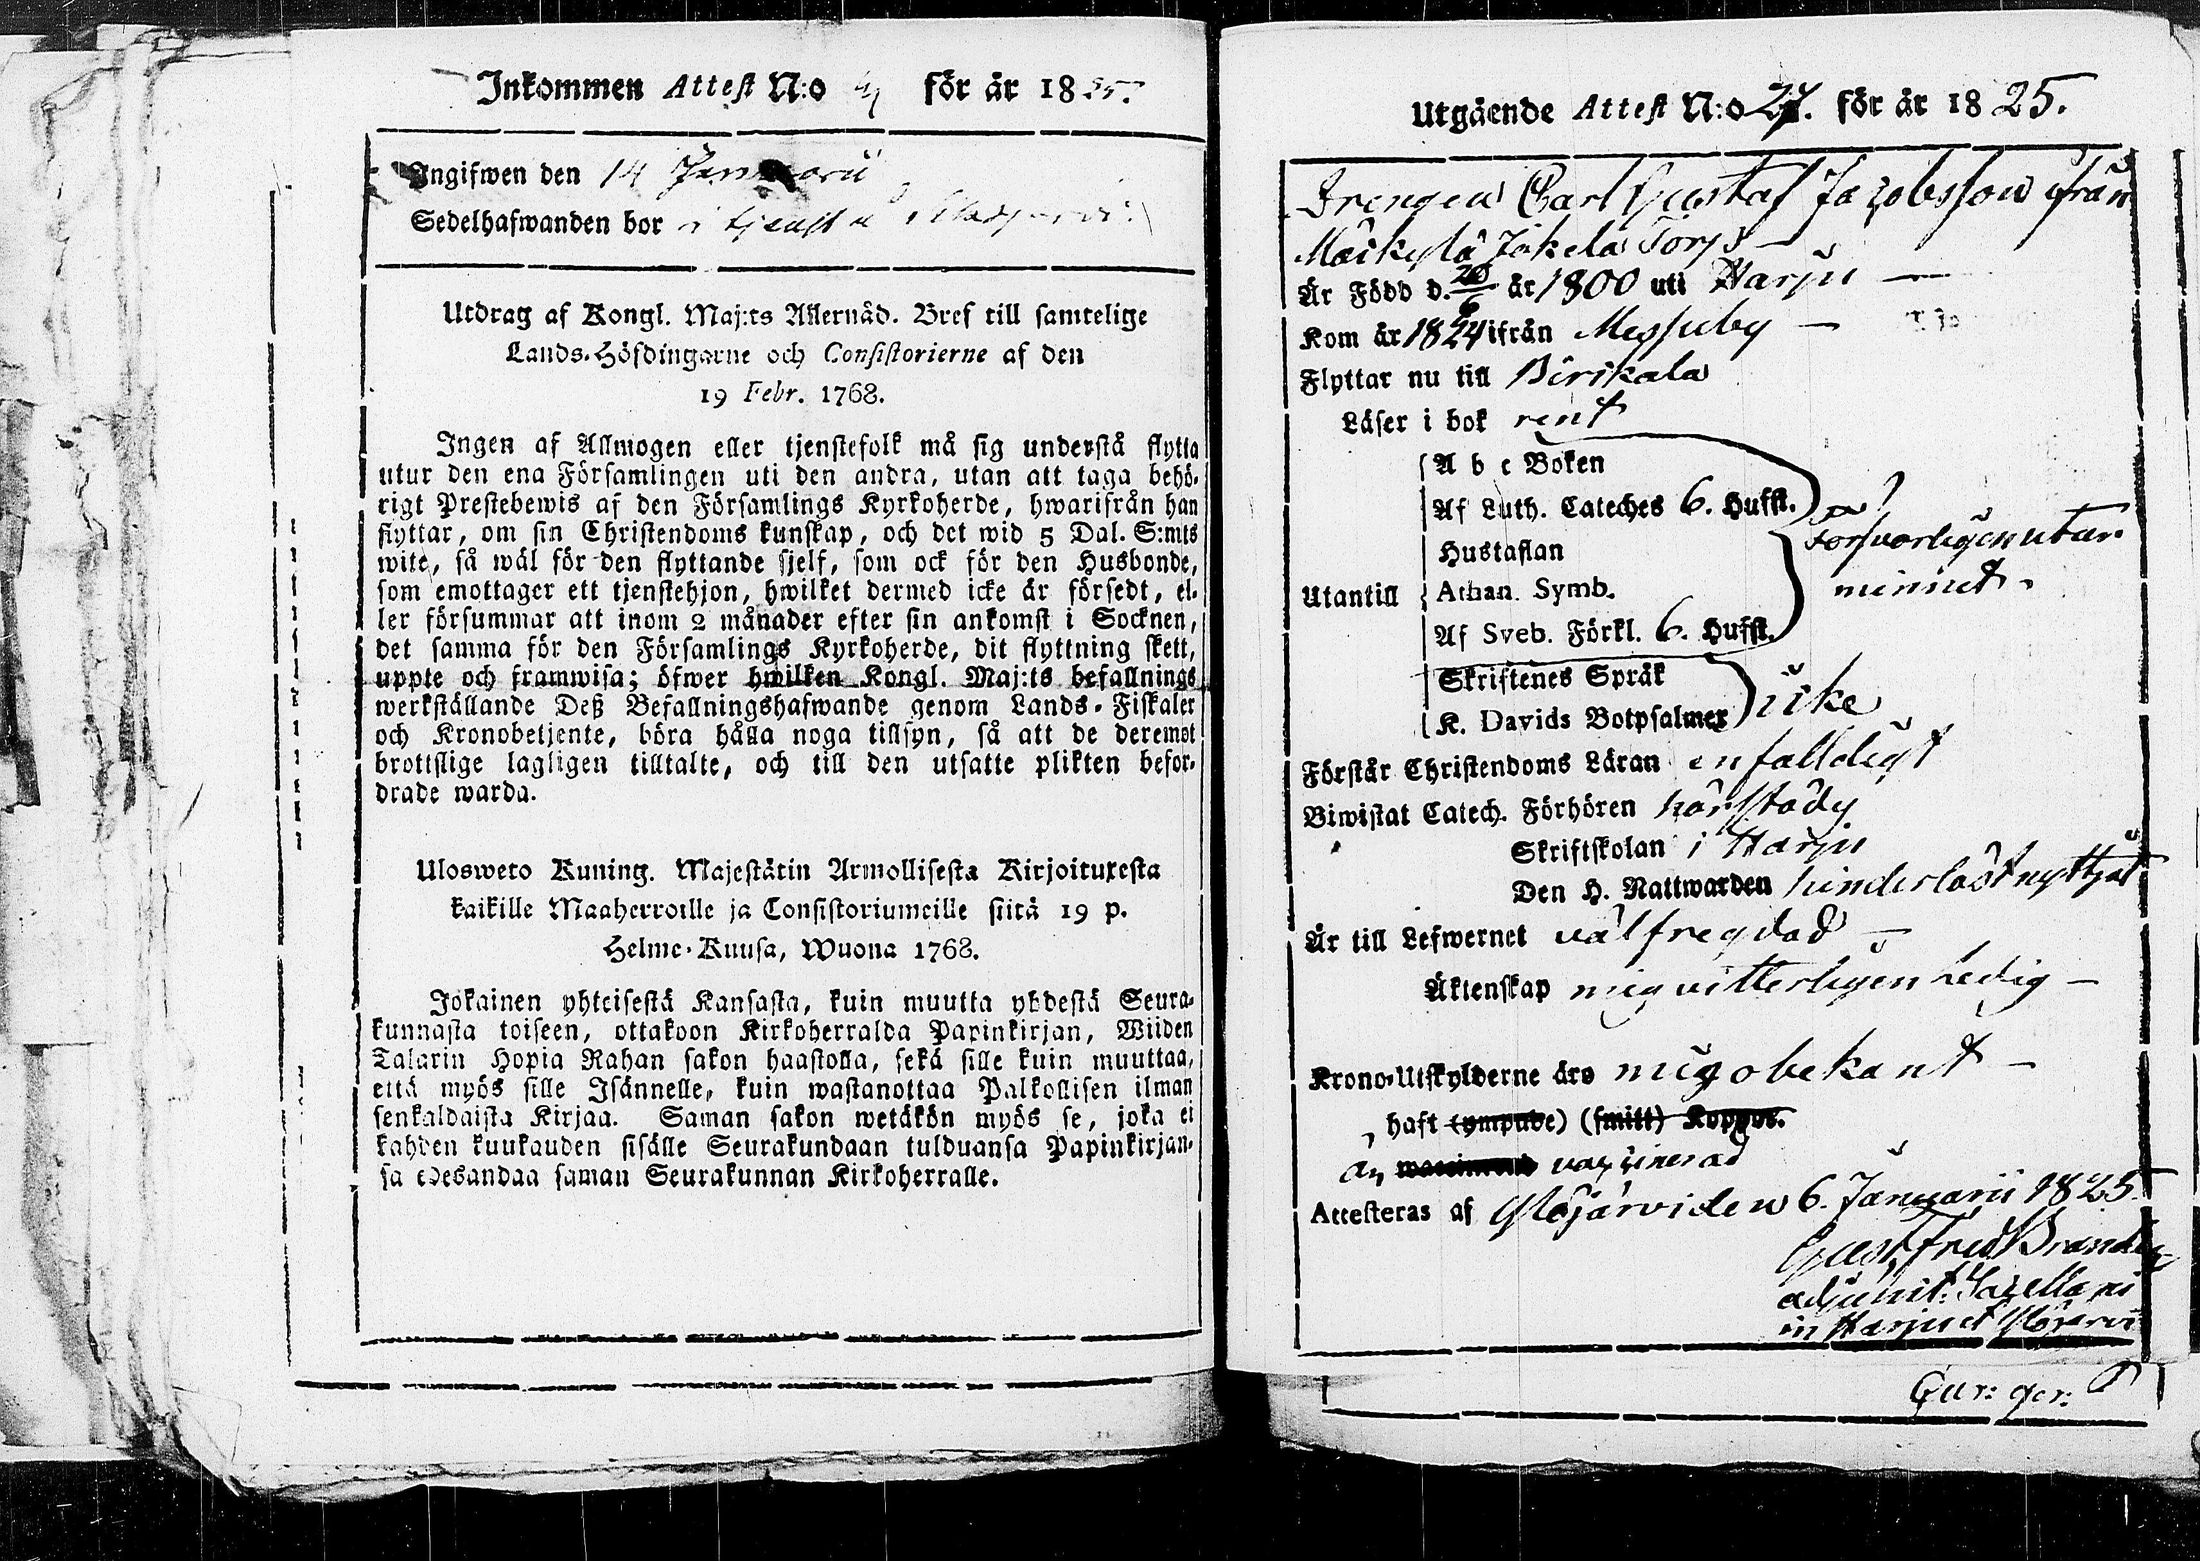 Inkommen Attest N:o 4 för år 1825.
Ingifwen den 14 Januarii
Sedelhafwanden bor i tjenst
Utdrag af Kongl. Maj:ts Allernåd. Bref till samtelige
Lands-Höfdingarne och Consistorierne af den
19 Febr. 1768.
Ingen af Allmogen eller tjenstefolk må sig understå flytta
utur den ena Församlingen uti den andra, utan att taga behö-
rigt Prestebewis af den Församlings Kyrkoherde, hwarifrån han
flyttar, om sin Christendoms kunskap, och det wid 5 Dal. S:mts
wite, så wäl för den flyttande sjelf, som ock för den Husbonde,
som emottager ett tjenstehjon, hwilket dermed icke är försedt, el-
ler försummar att inom 2 månader efter sin ankomst i Socknen,
det samma för den Församlings Kyrkoherde, dit flyttning skett,
uppte och framwisa; öfwer hwilken Kongl. Maj:ts befallnings
werkställande Deß Befallningshafwande genom Lands-Fiskaler
och Kronobetjente, böra hålla noga tillsyn, så att de deremot
brottslige lagligen tilltalte, och till den utsatte plikten befor-
drade warda.
Ulosweto Kuning. Majestätin Armollisesta Kirjoituxesta
kaikille Maaherroille ja Consistoriumeille siitä 19 p.
Helme-Kuusa, Wuona 1768.
Jokainen yhteisestä Kansasta, kuin muutta yhdestä Seura-
kunnasta toiseen, ottakoon Kirkoherralda Papinkirjan, Wiiden
Talarin Hopia Rahan sakon haastolla, sekä sille kuin muuttaa,
että myös sille Isännelle, kuin wastanottaa Palkollisen ilman
senkaldaista Kirjaa. Saman sakon wetäkön myös se, joka ei
kahden kuukauden sisälle Seurakundaan tulduansa Papinkirjan-
sa edesandaa saman Seurakunnan Kirkoherralle.
Utgående Attest N:o 27. för år 1825.
Drengen Carl Gustaf Jacobsson ifrån
Mäkylä Jokela Torp –
Är Född d. 20/6 år 1800 uti Harju –
Kom år 1824 ifrån Messuby –
Flyttar nu till Birkala
Läser i bok rent
A b c Boken
Af Luth. Cateches 6. Hufst.
Hustaflan
Utantill Athan. Symb.
Af Sveb. Förkl. 6. Hufst.
försvarligen utur
minnet.
Skriftenes Språk
K. Davids Botpsalmer
icke
Förstår Christendoms Läran enfalldigt
Biwistat Catech. Förhören närstädes
Skriftskolan i Harju
Den H. Nattwarden hinderlöst nyttjat
Är till Lefwernet välfregdad –
Äktenskap mig vitterligen Ledig –
Krono-Utskylderne äro mig obekant –
haft (ympade) (smitt) Koppor.
är vaccinerad
Attesteras af Ylöjärvi den 6. Januarii 1825.
Gust. Fred. Brander
adjunct: Sacellani
in Harju et Ylöjärvi
Cur: ger: